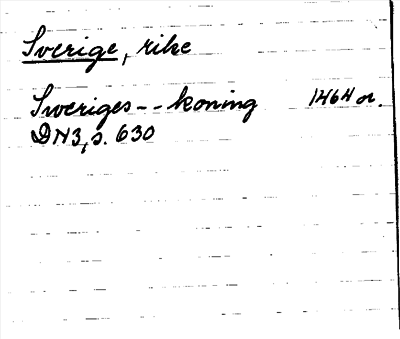 Sverige, rike
Sweriges -- koning 1464 or.
DN3, s. 630